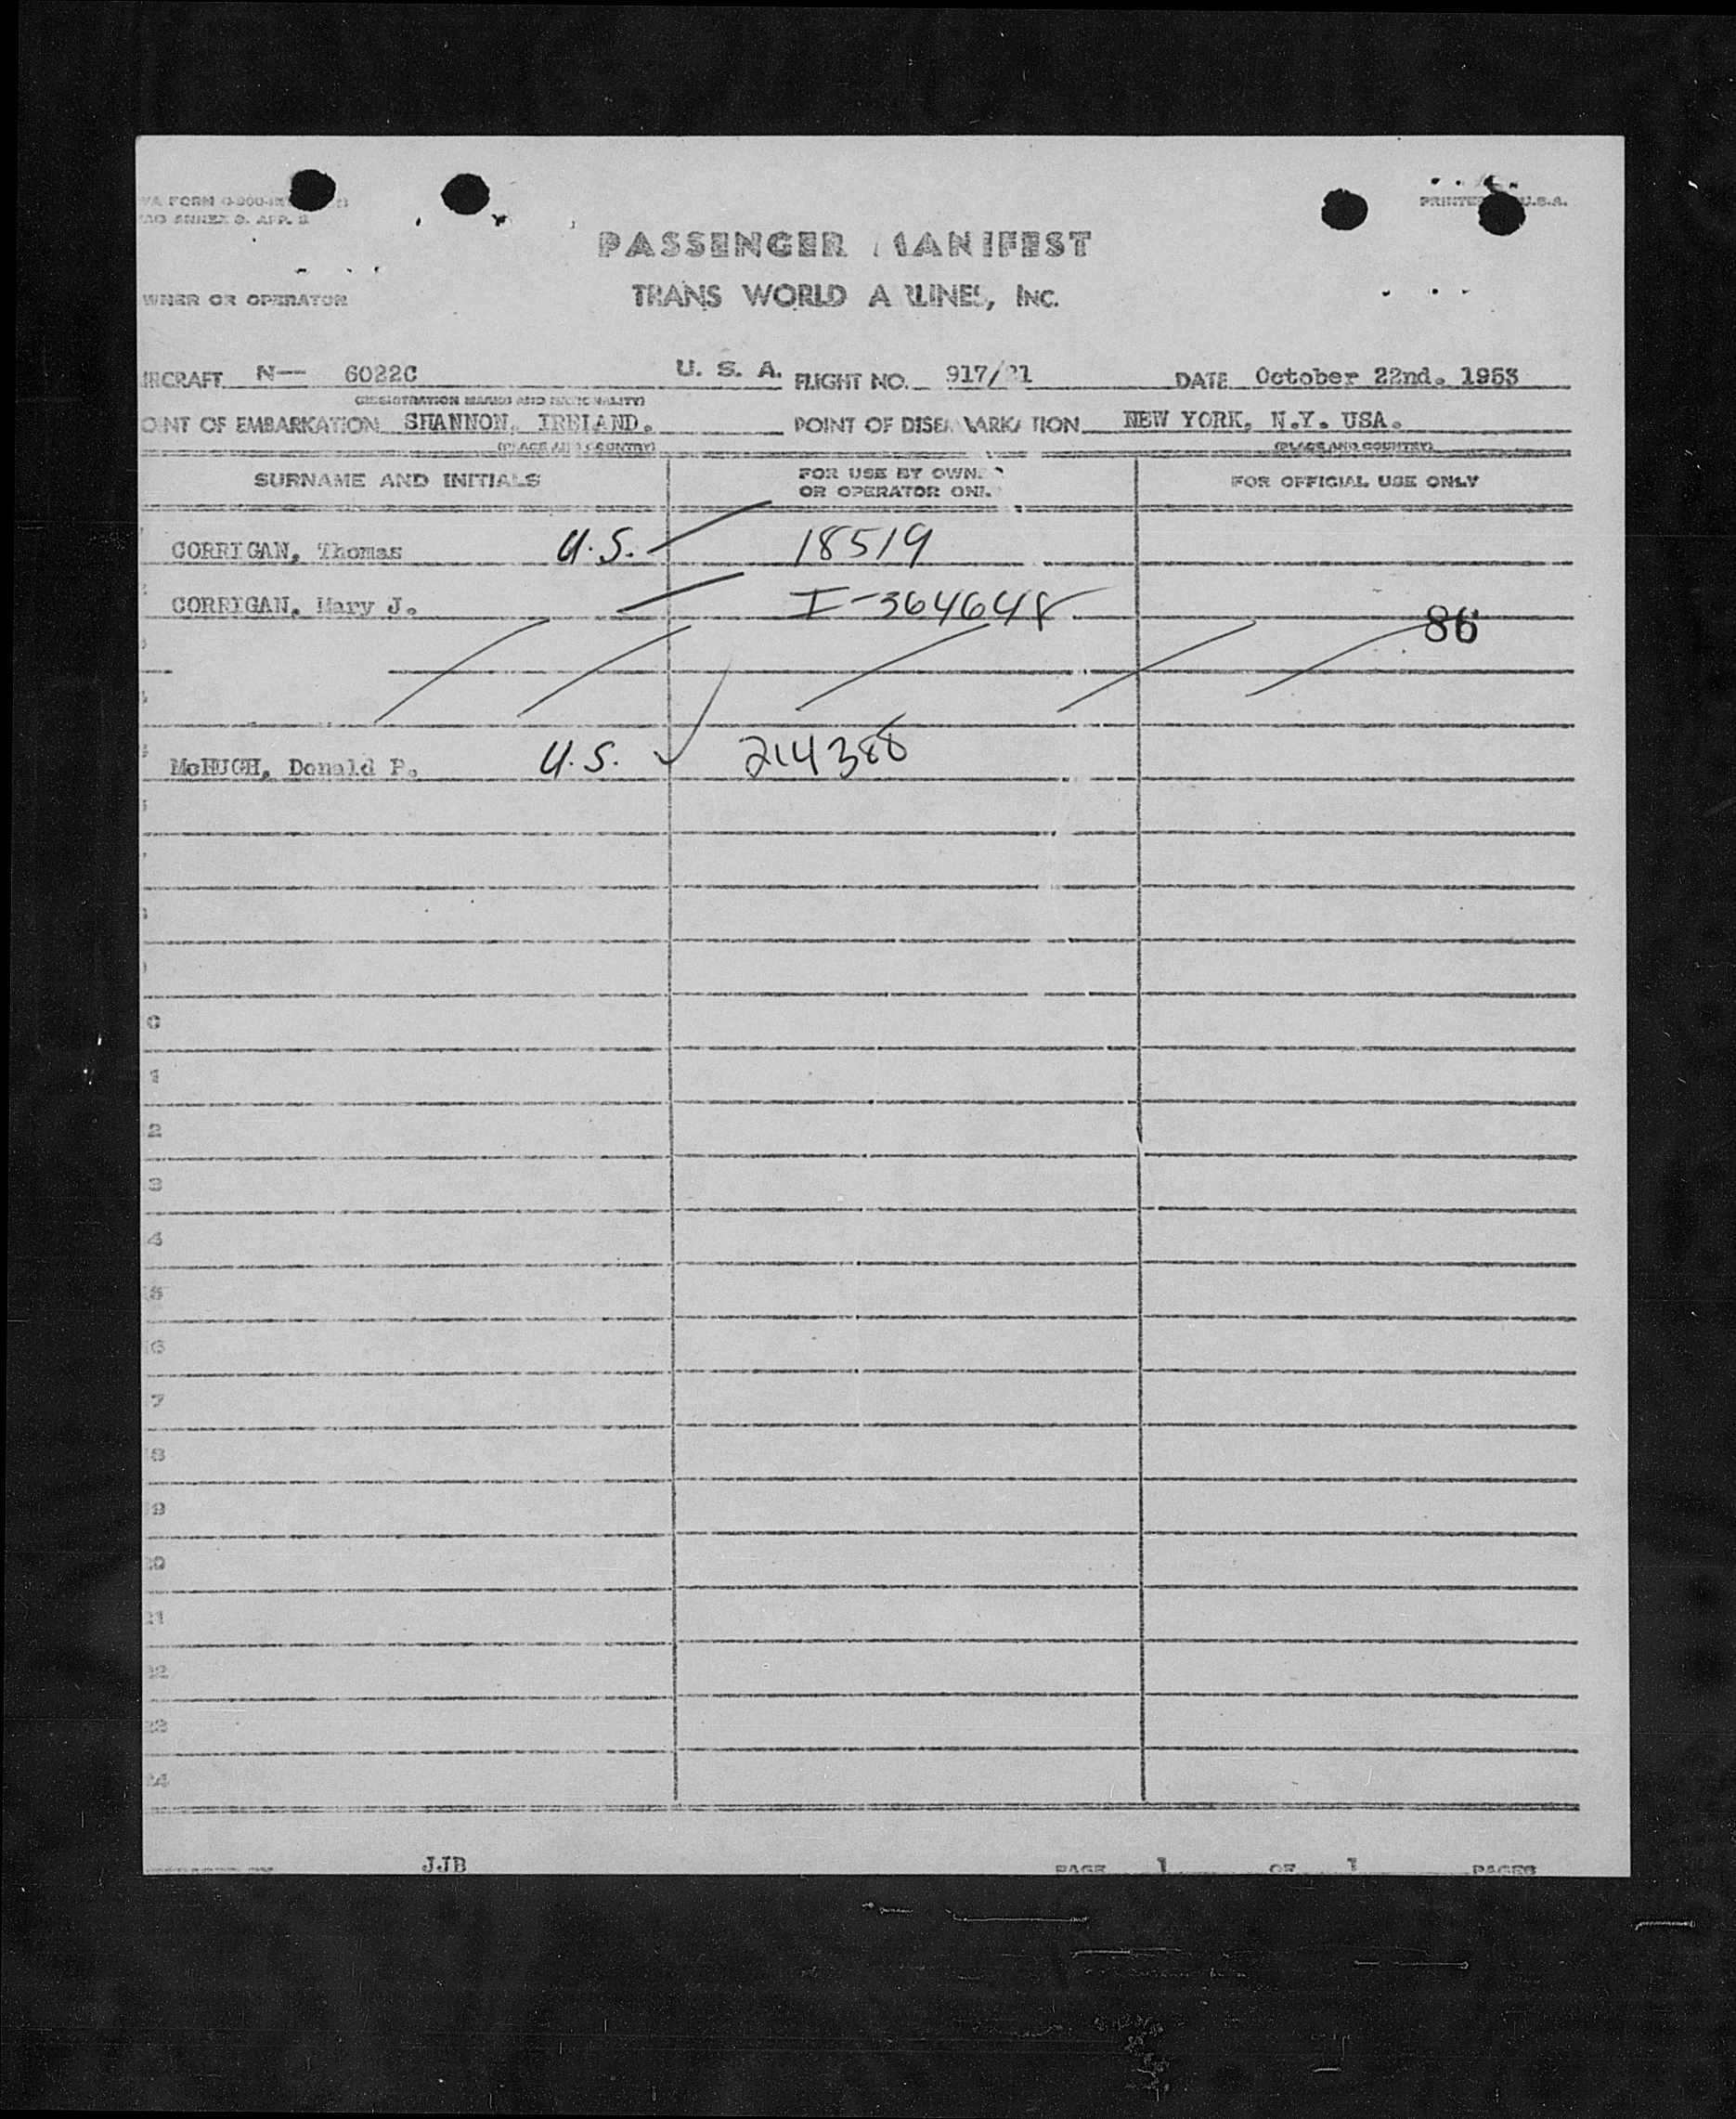 PRINTED U.S.A.
ANNEX 9. APP. 3
PASSENGER MANIFEST
WNER OR OPERATOR TRANS WORLD AIRLINES, INC.
IRCRAFT N— 6022C U. S. A. FLIGHT NO. 917/21 DATE October 22nd. 1953
(REGISTRATION MARKS AND NATIONALITY)
OINT OF EMBARKATION SHANNON, IRELAND. POINT OF DISEMBARKATION NEW YORK, N.Y. USA.
(PLACE AND COUNTRY) (PLACE AND COUNTRY)
SURNAME AND INITIALS FOR USE BY OWNER OR OPERATOR ONLY FOR OFFICIAL USE ONLY
CORRIGAN, Thomas U.S. 18519
CORRIGAN, Mary J. I-364648
86
McHUGH, Donald P. U.S. 214388
0
1
2
3
4
5
6
7
8
9
20
21
22
23
24
JJB PAGE 1 OF 1 PAGES